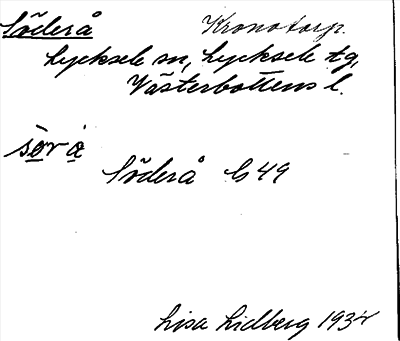 Söderå Kronotorp.
Lycksele sn, Lycksele tg,
Västerbottens l.
Söderå G 49
Lisa Lidberg 1934